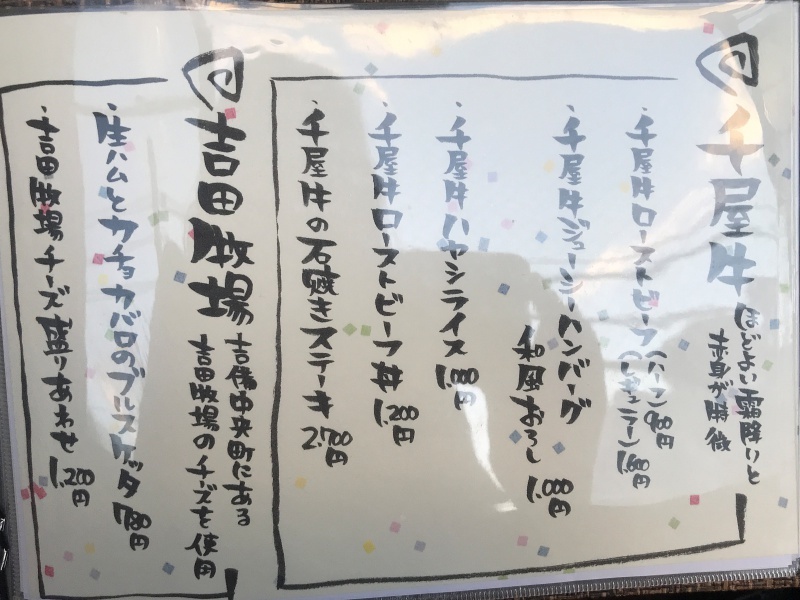 千屋牛
ほどよい霜降りと
赤身が特徴
・千屋牛ローストビーフ(ハーフ)900円
(レギュラー)1,600円
・千屋牛ジューシーハンバーグ
和風おろし 1,000円
・千屋牛ハヤシライス 1,000円
・千屋牛ローストビーフ丼 1,200円
・千屋牛の石焼きステーキ 2,700円
吉田牧場
吉備中央町にある
吉田牧場のチーズを使用
・生ハムとカチョカバロのブルスケッタ 780円
・吉田牧場チーズ盛りあわせ 1,200円